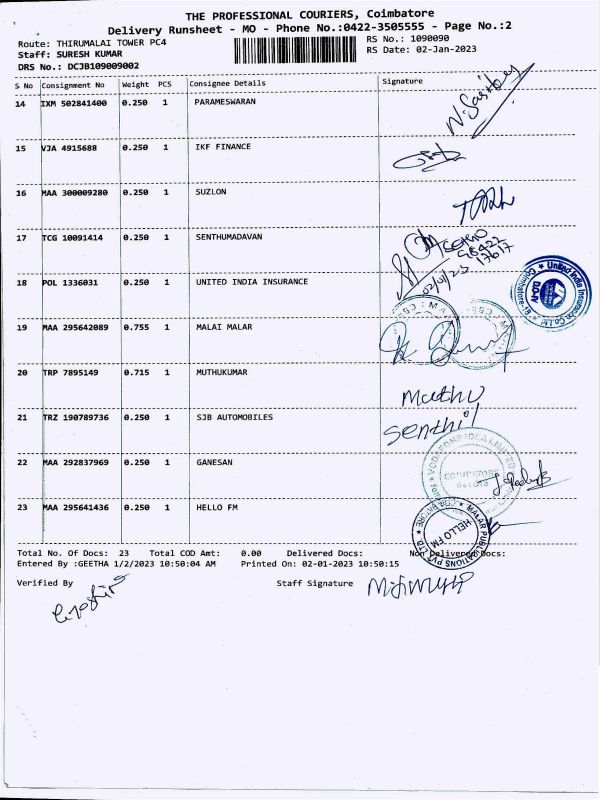 THE PROFESSIONAL COURIERS, Coimbatore
Delivery Runsheet - MO - Phone No.:0422-3505555 - Page No.:2
Route: THIRUMALAI TOWER PC4 RS No.: 1090090
Staff: SURESH KUMAR RS Date: 02-Jan-2023
DRS No.: DCJB109009002
S No Consignment No Weight PCS Consignee Details Signature
14 IXM 502841400 0.250 1 PARAMESWARAN
15 VJA 4915688 0.250 1 IKF FINANCE
16 MAA 300009280 0.250 1 SUZLON
17 TCG 10091414 0.250 1 SENTHUMADAVAN
02/01/23
18 POL 1336031 0.250 1 UNITED INDIA INSURANCE
United India Insurance Co. Ltd. DO-IV
19 MAA 295642089 0.755 1 MALAI MALAR
20 TRP 7895149 0.715 1 MUTHUKUMAR
muthu
21 TRZ 190789736 0.250 1 SJB AUTOMOBILES
senthil
22 MAA 292837969 0.250 1 GANESAN
VODAFONE IDEA LIMITED
COIMBATORE
23 MAA 295641436 0.250 1 HELLO FM
MALAR PUBLICATIONS PVT. LTD.
HELLO FM
Total No. Of Docs: 23 Total COD Amt: 0.00 Delivered Docs: Non Delivered Docs:
Entered By :GEETHA 1/2/2023 10:50:04 AM Printed On: 02-01-2023 10:50:15
Verified By Staff Signature